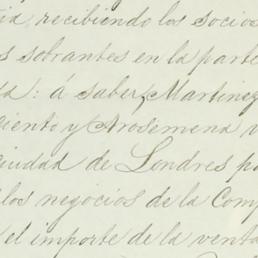 ia, recibiendo los socios
s sobrantes en la parte
da: á saber, Martinez
ciento y Arosemena v
ciudad de Londres po
los negocios de la Comp
el importe de la venta